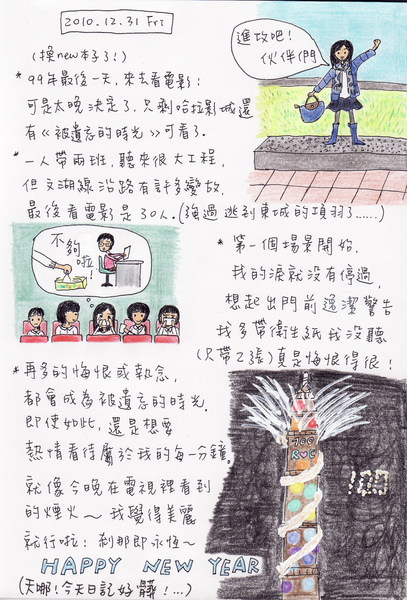 2010.12.31 Fri
(換new本子了!)
進攻吧!
伙伴們
* 99年最後一天,來去看電影!
可是太晚決定了,只剩哈拉影城還
有《被遺忘的時光》可看了。
* 一人帶兩班,聽來很大工程,
但文湖線沿路有許多變故,
最後看電影是30人。(強過逃到東城的項羽了......)
不夠
啦!
* 第一個場景開始,
我的淚就沒有停過,
想起出門前逸潔警告
我多帶衛生紙我沒聽
(只帶2張)真是悔恨得很!
* 再多的悔恨或執念,
都會成為被遺忘的時光。
即使如此,還是想要
熱情看待屬於我的每一分鐘。
就像今晚在電視裡看到
的煙火~我覺得美麗
就行啦!剎那即永恆~
100
R♥C
100
HAPPY NEW YEAR
(天哪!今天日記好髒!...)